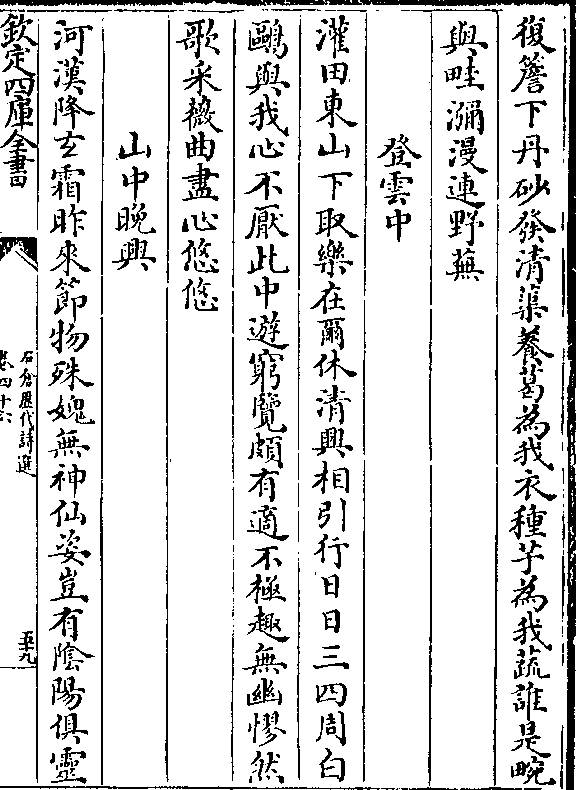 復簷下丹砂發清蕖養葛為我衣種芋為我蔬誰是畹
與畦瀰漫連野蕪
登雲中
灌田東山下取樂在爾休清興相引行日日三四周白
鷗與我心不厭此中遊窮覽頗有適不極趣無幽憀然
歌采薇曲盡心悠悠
山中晚興
河漢降玄霜昨來節物殊媿無神仙姿豈有陰陽俱靈
欽定四庫全書
石倉歷代詩選
卷四十六
五十九